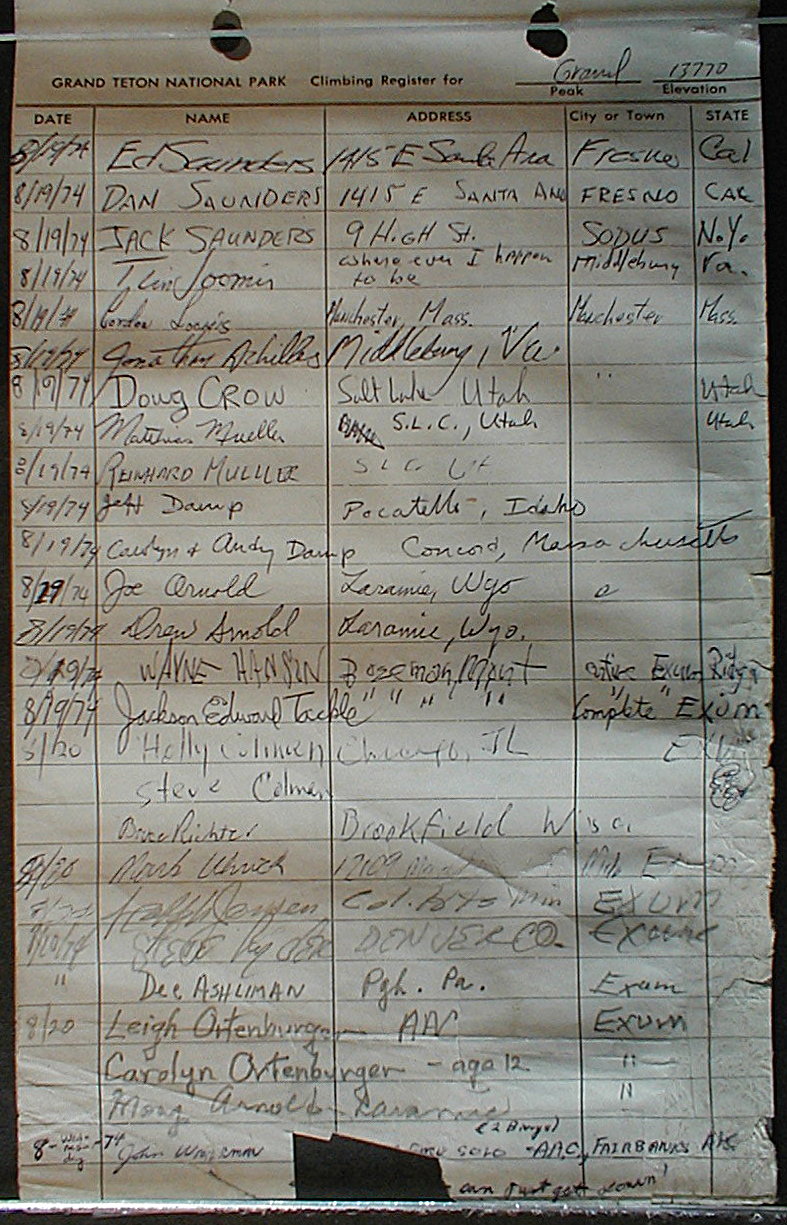 Grand 13770
GRAND TETON NATIONAL PARK Climbing Register for Peak Elevation
DATE NAME ADDRESS City or Town STATE
8/19/74 Ed Saunders 1415 E Santa Ana Fresno Cal
8/19/74 DAN SAUNDERS 1415 E SANTA ANA FRESNO CAL
8/19/74 JACK SAUNDERS 9 HiGH St. SODUS N.Y.
8/19/74 where ever I happen to be Middleburg Va.
8/19/74 Gordon Manchester, Mass. Manchester Mass.
8/19/74 Jonathan Achilles Middleburg, Va.
8/19/74 Doug CROW Salt Lake Utah " Utah
8/19/74 Matthias Mueller S.L.C., Utah Utah
8/19/74 REINHARD MULLER S L C UT
8/19/74 Jeff Damp Pocatello, Idaho
8/19/74 Carolyn & Andy Damp Concord, Massachusetts
8/19/74 Joe Arnold Laramie, Wyo
8/19/74 Drew Arnold Laramie, Wyo.
8/19/74 WAYNE HANSON Bozeman, Mont entire Exum Ridge
8/19/74 Jackson Edward Tackle " " " " Complete Exum
8/20 Holly Colman Chicago, IL
Steve Colman
Bruce Richter Brookfield Wisc.
17109
Ralph Jensen EXUM
STEVE DENVER CO. Exum
" Dee ASHLIMAN Pgh. Pa. Exum
8/20 Leigh Ortenburger AAC Exum
Carolyn Ortenburger - age 12 "
Arnold Laramie "
8- -74 John SOLO - AAC, FAIRBANKS AK.
can just get down!